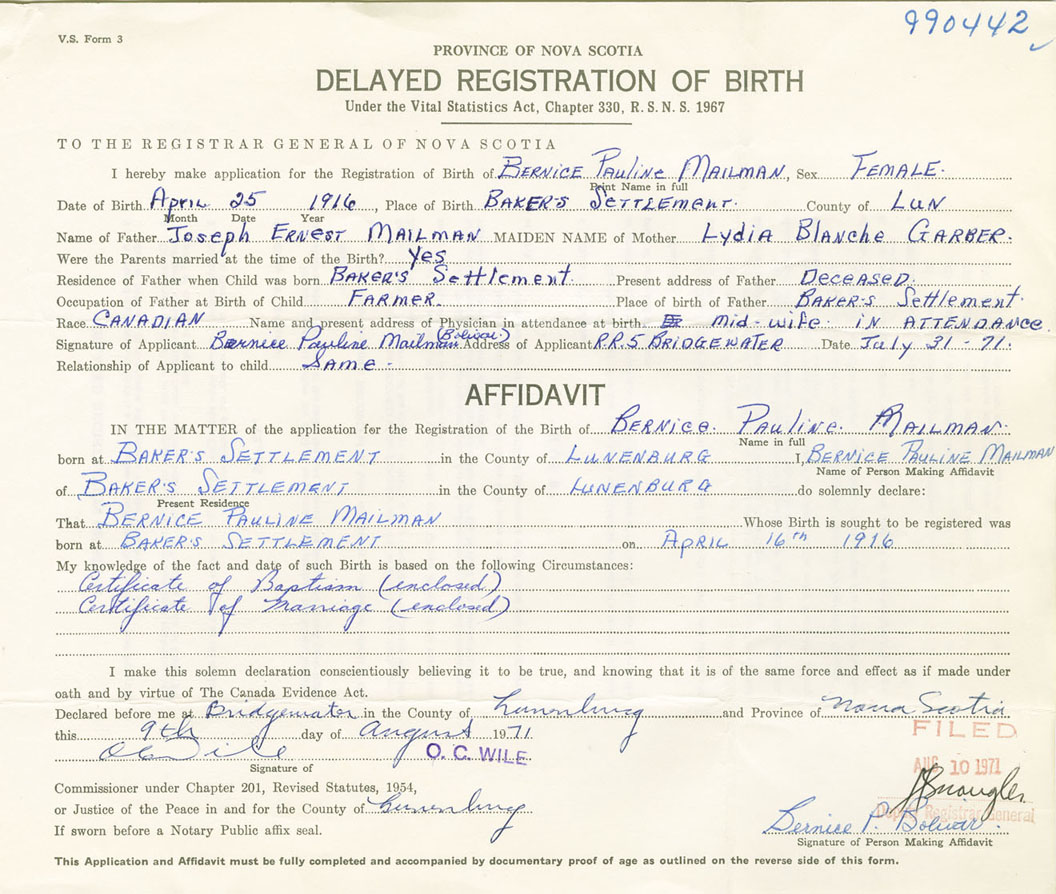 990442
V.S. Form 3
PROVINCE OF NOVA SCOTIA
DELAYED REGISTRATION OF BIRTH
Under the Vital Statistics Act, Chapter 330, R. S. N. S. 1967
TO THE REGISTRAR GENERAL OF NOVA SCOTIA
I hereby make application for the Registration of Birth of BERNICE PAULINE MAILMAN, Sex FEMALE.
Print Name in full
Date of Birth April 25 1916, Place of Birth BAKER'S SETTLEMENT. County of LUN
Month Date Year
Name of Father Joseph ERNEST MAILMAN MAIDEN NAME of Mother LYDIA BLANCHE GARBER.
Were the Parents married at the time of the Birth? Yes
Residence of Father when Child was born BAKER'S Settlement. Present address of Father DECEASED.
Occupation of Father at Birth of Child FARMER. Place of birth of Father BAKER'S Settlement.
Race CANADIAN Name and present address of Physician in attendance at birth. mid-wife IN ATTENDANCE.
Signature of Applicant Bernice Pauline Mailman (Bolivar) Address of Applicant R.R.5 BRIDGEWATER Date July 31-71.
Relationship of Applicant to child Same -
AFFIDAVIT
IN THE MATTER of the application for the Registration of the Birth of BERNICE PAULINE MAILMAN.
Name in full
born at BAKER'S SETTLEMENT in the County of LUNENBURG I, BERNICE PAULINE MAILMAN
Name of Person Making Affidavit
of BAKER'S SETTLEMENT in the County of LUNENBURG do solemnly declare:
Present Residence
That BERNICE PAULINE MAILMAN Whose Birth is sought to be registered was
born at BAKER'S SETTLEMENT on APRIL 16th 1916
My knowledge of the fact and date of such Birth is based on the following Circumstances:
Certificate of Baptism (enclosed)
Certificate of Marriage (enclosed)
I make this solemn declaration conscientiously believing it to be true, and knowing that it is of the same force and effect as if made under
oath and by virtue of The Canada Evidence Act.
Declared before me at Bridgewater in the County of Lunenburg and Province of Nova Scotia
this 9th day of August 1971
FILED
O C Wile O. C. WILE
Signature of
AUG 10 1971
Commissioner under Chapter 201, Revised Statutes, 1954,
or Justice of the Peace in and for the County of Lunenburg
Deputy Registrar General
If sworn before a Notary Public affix seal.
Bernice P. Bolivar
Signature of Person Making Affidavit
This Application and Affidavit must be fully completed and accompanied by documentary proof of age as outlined on the reverse side of this form.